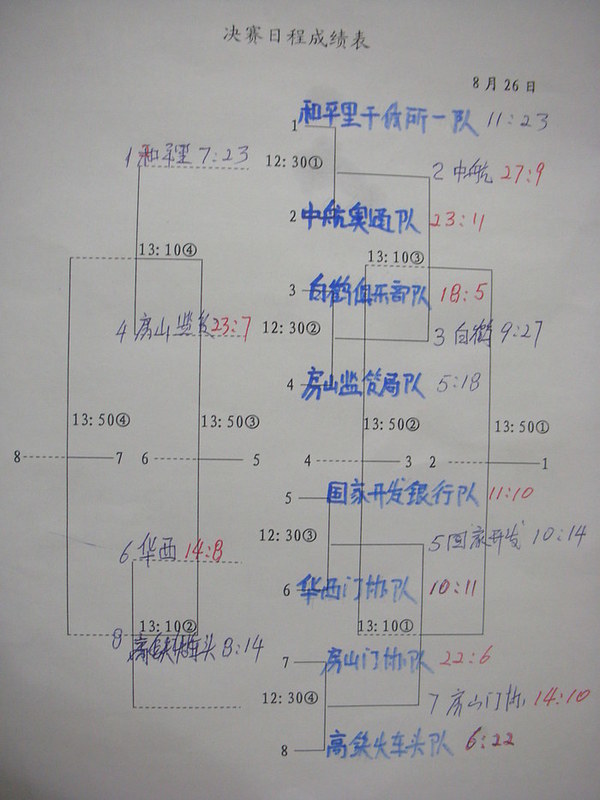 决赛日程成绩表
8月26日
1 和平里干休所一队 11:23
1 和平里 7:23
12:30①
2 中航 27:9
2 中航奥通队 23:11
13:10④
13:10③
3 白鹤俱乐部队 18:5
4 房山监 23:7
12:30②
3 白鹤 9:27
4 房山监管局队 5:18
13:50④
13:50③
13:50②
13:50①
8 7 6 5 4 3 2 1
5 国家开发銀行队 11:10
12:30③
5 国家开发 10:14
6 华西 14:8
6 华西门协队 10:11
13:10②
13:10①
8 高铁火车头 8:14
7 房山门协队 22:6
12:30④
7 房山门协 14:10
8 高铁火车头队 6:22